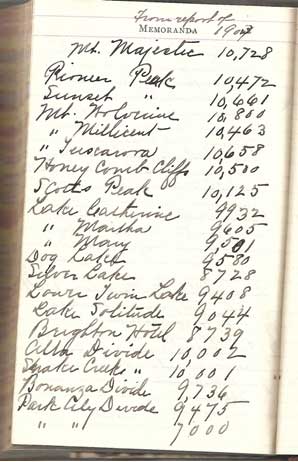 From report of
MEMORANDA 1904
Mt. Majestic 10,728
Pioneer Peak 10,472
Sunset " 10,661
Mt. Wolverine 10,800
" Millicent 10,463
" Tuscarora 10,658
Honey Comb Cliffs 10,500
Scotts Peak 10,125
Lake Catherine 9932
" Martha 9605
" Mary 9,501
Dog Lake 9580
Silver Lake 8728
Lower Twin Lake 9408
Lake Solitude 9044
Brighton Hotel 8739
Alta Divide 10,002
Snake Creek " 10,001
Bonanza Divide 9,736
Park City Divide 9475
" " 7000